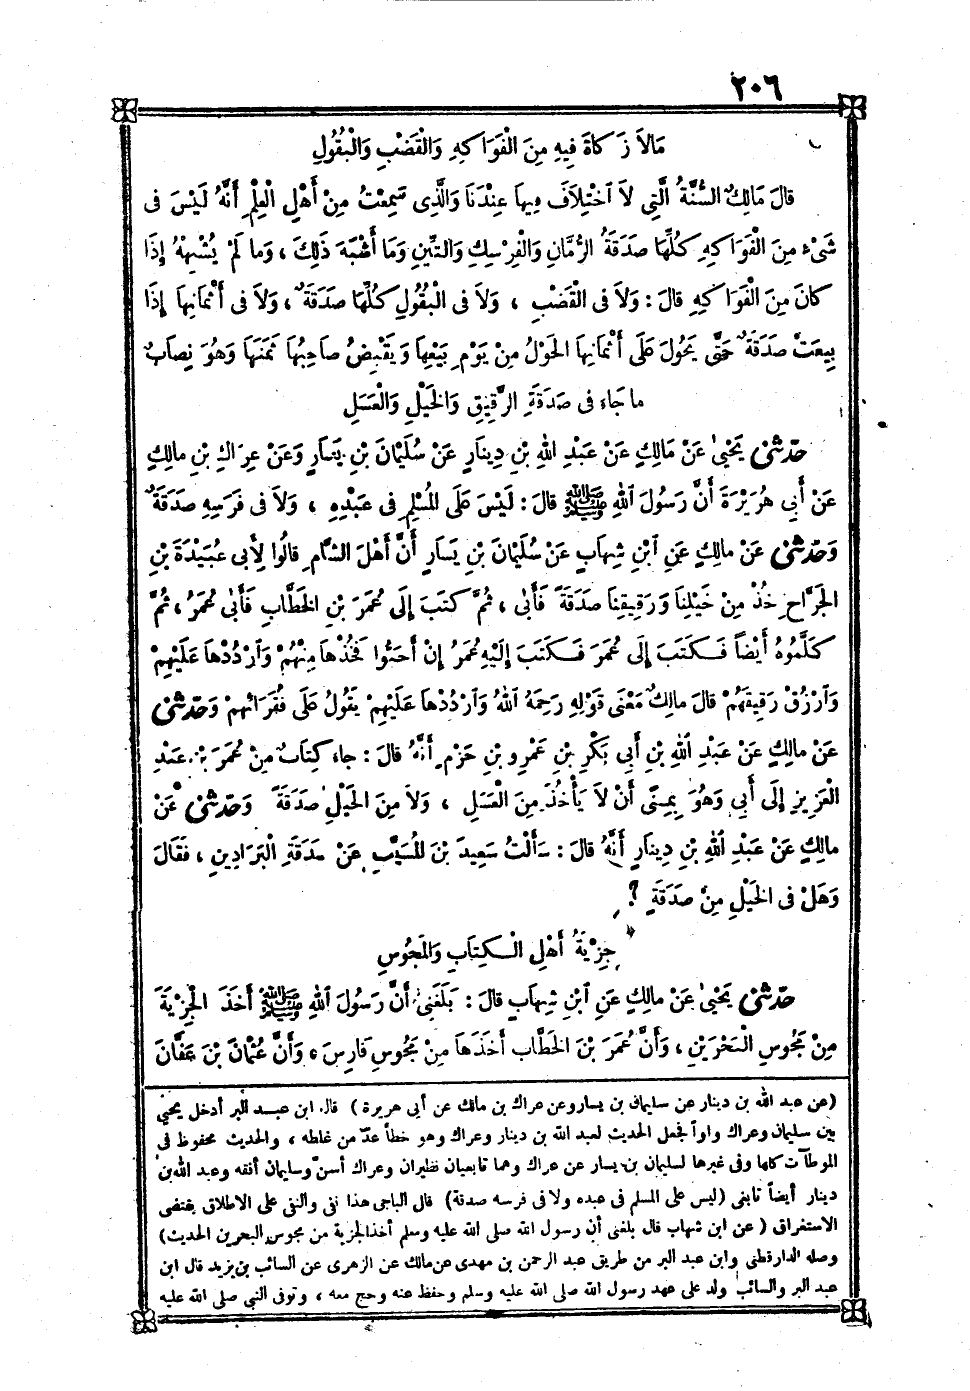 ٢٠٦
مَالاَ زَكَاةَ فِيهِ مِنَ الْفَوَاكِهِ وَالْقَضْبِ وَالْبُقُولِ
قَالَ مَالِكٌ السُّنَّةُ الَّتِي لاَ آخْتِلاَفَ فِيهَا عِنْدَنَا وَالَّذِى سَمِعْتُ مِنْ أَهْلِ الْعِلْمِ أَنَّهُ لَيْسَ فِى
شَىْءٍ مِنَ الْفَوَاكِهِ كُلِّهَا صَدَقَةُ الرُّمَّانِ وَالْفِرْسِكِ وَالتِّينِ وَمَا أَشْبَهَ ذَلِكَ ، وَمَا لَمْ يُشْبِهْهُ إِذَا
كَانَ مِنَ الْفَوَاكِهِ قَالَ : وَلاَ فِى الْقَضْبِ ، وَلاَ فِى الْبُقُولِ كُلِّهَا صَدَقَةٌ ، وَلاَ فِى أَثْمَانِهَا إِذَا
بِيعَتْ صَدَقَةٌ حَتَّى يَحُولَ عَلَى أَثْمَانِهَا الحَوْلُ مِنْ يَوْمِ بَيْعِهَا وَيَقْبِضُ صَاحِبُهَا ثَمَنَهَا وَهُوَ نِصَابٌ
مَا جَاءَ فِى صَدَقَةِ الرَّقِيقِ وَالخَيْلِ وَالْعَسَلِ
حَدَّثَنِى يَحْيَىٰ عَنْ مَالِكٍ عَنْ عَبْدِ اللهِ بْنِ دِينَارٍ عَنْ سُلَيْمَانَ بْنِ يَسَارٍ وَعَنْ عِرَاكِ بْنِ مَالِكٍ
عَنْ أَبِي هُرَيْرَةَ أَنَّ رَسُولَ اللهِ ﷺ قَالَ : لَيْسَ عَلَى المُسْلِمِ فِى عَبْدِهِ ، وَلاَ فِى فَرَسِهِ صَدَقَةٌ
وَحَدَّثَنِى عَنْ مَالِكٍ عَنِ ابْنِ شِهَابٍ عَنْ سُلَيْمَانَ بْنِ يَسَارٍ أَنَّ أَهْلَ الشَّامِ قَالُوا لِأَبِى عُبَيْدَةَ بْنِ
الجَرَّاحِ خُذْ مِنْ خَيْلِنَا وَرَقِيقِنَا صَدَقَةً فَأَبَى ، ثُمَّ كَتَبَ إِلَى عُمَرَ بْنِ الخَطَّابِ فَأَبَى عُمَرُ ، ثُمَّ
كَلَّمُوهُ أَيْضاً فَكَتَبَ إِلَى عُمَرَ فَكَتَبَ إِلَيْهِ عُمَرُ إِنْ أَحَبُّوا فَخُذْهَا مِنْهُمْ وَآرْدُدْهَا عَلَيْهِمْ
وَآرْزُقْ رَقِيقَهُمْ قَالَ مَالِكٌ مَعْنَى قَوْلِهِ رَحِمَهُ اللهُ وَآرْدُدْهَا عَلَيْهِمْ يَقُولُ عَلَى فُقَرَائِهِمْ وَحَدَّثَنِى
عَنْ مَالِكٍ عَنْ عَبْدِ اللهِ بْنِ أَبِى بَكْرِ بْنِ عَمْرِو بْنِ حَزْمٍ أَنَّهُ قَالَ : جَاءَ كِتَابٌ مِنْ عُمَرَ بْنِ عَبْدِ
الْعَزِيزِ إِلَى أَبِى وَهُوَ بِمِنًى أَنْ لاَ يَأْخُذَ مِنَ الْعَسَلِ ، وَلاَ مِنَ الخَيْلِ صَدَقَةً وَحَدَّثَنِى عَنْ
مَالِكٍ عَنْ عَبْدِ اللهِ بْنِ دِينَارٍ أَنَّهُ قَالَ : سَأَلْتُ سَعِيدَ بْنَ المُسَيَّبِ عَنْ صَدَقَةِ الْبَرَاذِينِ ، فَقَالَ
وَهَلْ فِى الخَيْلِ مِنْ صَدَقَةٍ ؟
جِزْيَةُ أَهْلِ الْكِتَابِ وَالمَجُوسِ
حَدَّثَنِى يَحْيَىٰ عَنْ مَالِكٍ عَنِ ابْنِ شِهَابٍ قَالَ : بَلَغَنِى أَنَّ رَسُولَ اللهِ ﷺ أَخَذَ الْجِزْيَةَ
مِنْ مَجُوسِ الْبَحْرَيْنِ ، وَأَنَّ عُمَرَ بْنَ الخَطَّابِ أَخَذَهَا مِنْ مَجُوسِ فَارِسَ ، وَأَنَّ عُثْمَانَ بْنَ عَفَّانَ
(عن عبد الله بن دينار عن سليمان بن يسار وعن عراك بن مالك عن أبى هريرة) قال ابن عبد البر أدخل يحيى
بين سليمان وعراك واوا فجعل الحديث لعبد الله بن دينار وعراك وهو خطأ عدّ من غلطه ، والحديث محفوظ فى
الموطآت كلها وفى غيرها لسليمان بن يسار عن عراك وهما تابعيان نظيران وعراك أسنّ وسليمان أفقه وعبد الله بن
دينار أيضاً تابعى (ليس على المسلم فى عبده ولا فى فرسه صدقة) قال الباجى هذا نفى والنفى على الاطلاق يقتضى
الاستغراق (عن ابن شهاب قال بلغنى أن رسول الله صلى الله عليه وسلم أخذ الجزية من مجوس البحرين الحديث)
وصله الدارقطنى وابن عبد البر من طريق عبد الرحمن بن مهدى عن مالك عن الزهرى عن السائب بن يزيد قال ابن
عبد البر والسائب ولد على عهد رسول الله صلى الله عليه وسلم وحفظ عنه وحج معه ، وتوفى النبى صلى الله عليه